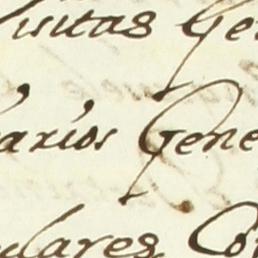 Visitas Ge
arios Gene
ulares Co